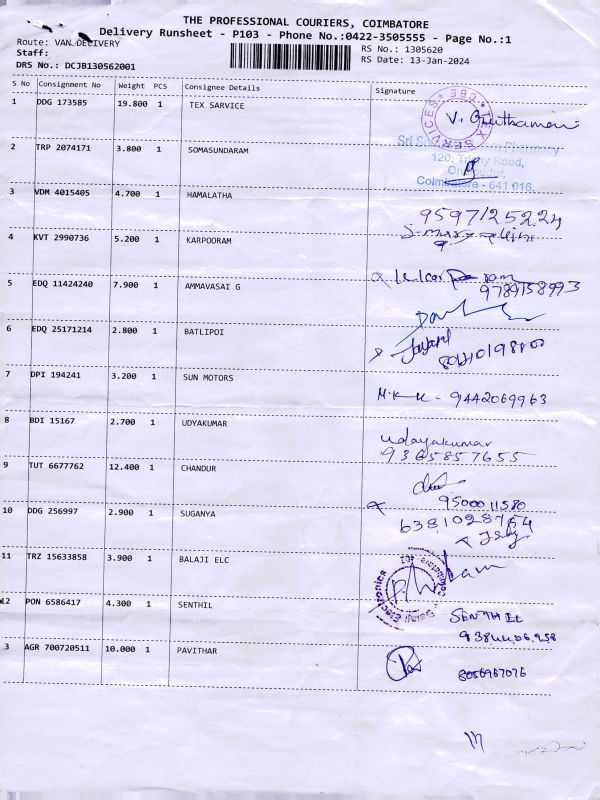 THE PROFESSIONAL COURIERS, COIMBATORE
Delivery Runsheet - P103 - Phone No.:0422-3505555 - Page No.:1
Route: VAN DELIVERY
RS No.: 1305620
Staff:
RS Date: 13-Jan-2024
DRS No.: DCJB130562001
S No Consignment No Weight PCS Consignee Details Signature
1 DDG 173585 19.800 1 TEX SARVICE
TEX SERVICES CBE
2 TRP 2074171 3.800 1 SOMASUNDARAM
Pharmacy
120, Trichy Road,
Coimbatore - 641 016.
3 VDM 4015405 4.700 1 HAMALATHA
9597125224
4 KVT 2990736 5.200 1 KARPOORAM
5 EDQ 11424240 7.900 1 AMMAVASAI G
9789158993
6 EDQ 25171214 2.800 1 BATLIPOI
7 DPI 194241 3.200 1 SUN MOTORS
9442069963
8 BDI 15167 2.700 1 UDYAKUMAR
udayakumar
9365857655
9 TUT 6677762 12.400 1 CHANDUR
9500011580
10 DDG 256997 2.900 1 SUGANYA
11 TRZ 15633858 3.900 1 BALAJI ELC
Balaji Electronics
12 PON 6586417 4.300 1 SENTHIL
SENTHIL
3 AGR 700720511 10.000 1 PAVITHAR
8056967076